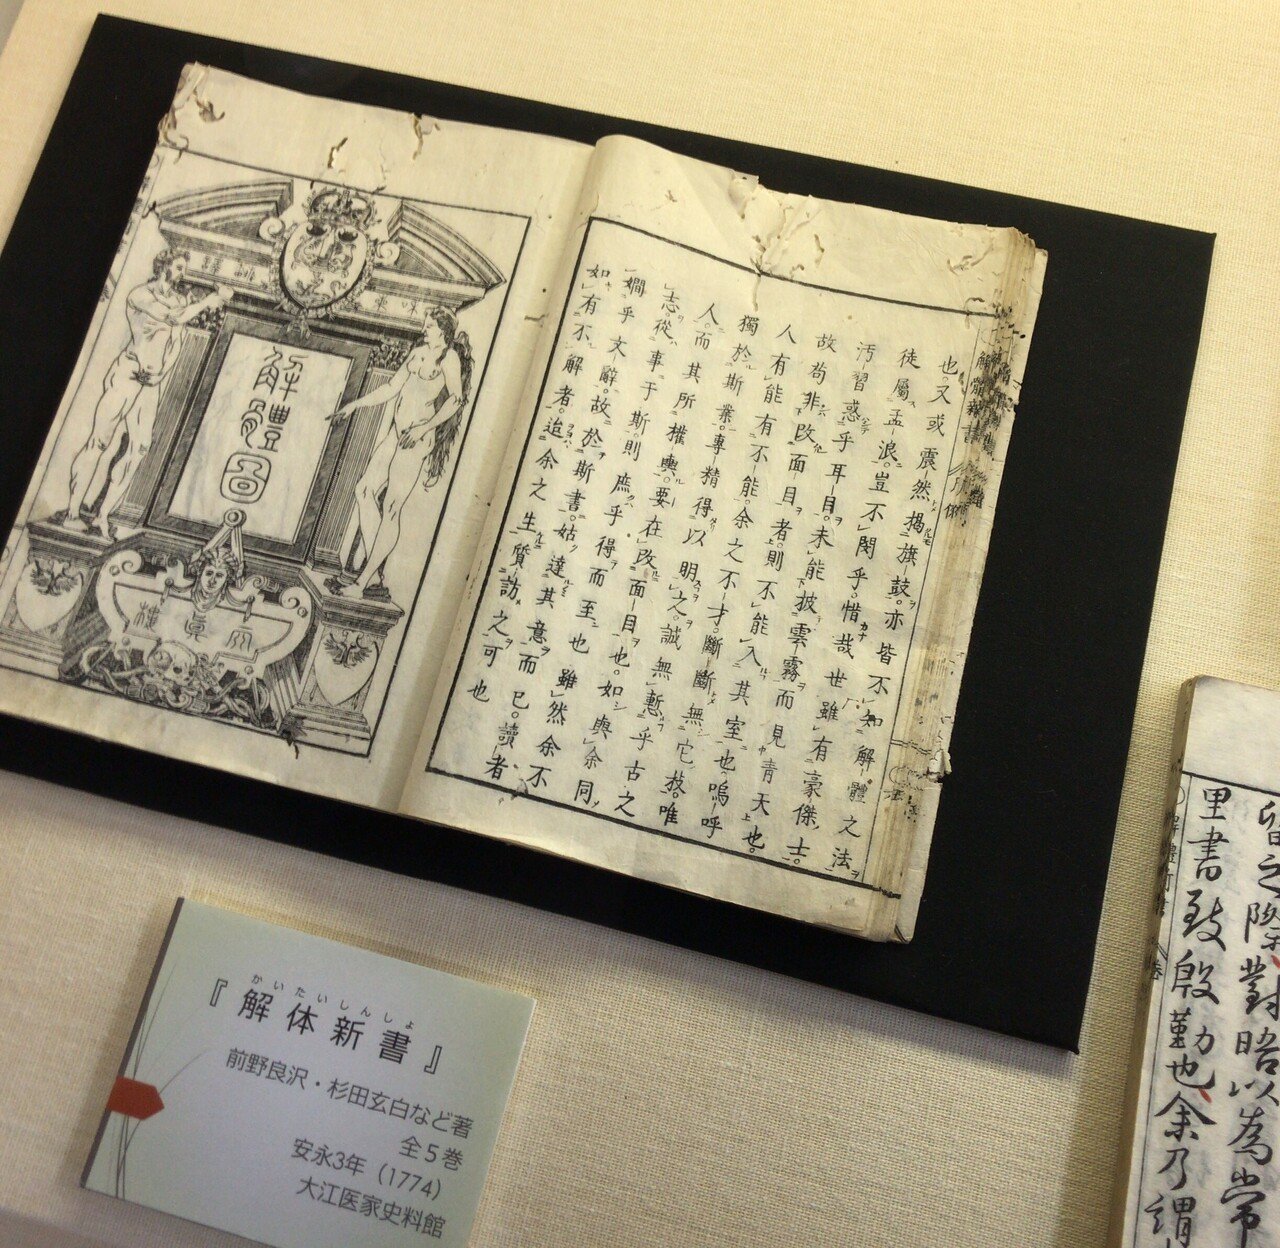 也。又或震然揭旗鼓。亦皆不知解體之法
徒屬孟浪。豈不閔乎。惜哉世雖有豪傑士。
汚習惑乎耳目。未能披雲霧而見青天也。
故苟非改面目者。則不能入其室也。嗚呼
人有能有不能。余之不才。斷斷無它技。唯
獨於斯業。專精得以明之。誠無慙乎古之
人。而其所權輿。要在改面目也。如與余同
志。從事于斯。則庶乎得而至也 雖然余不
嫺乎文辭。故於斯書。姑達其意而已。讀者
如有不解者。迨余之生質訪之可也
解體圖
天真樓
『解体新書』
かいたいしんしょ
前野良沢・杉田玄白など著
全5巻
安永3年（1774）
大江医家史料館
之際對晤以為常
里書致殷勤也余乃謂